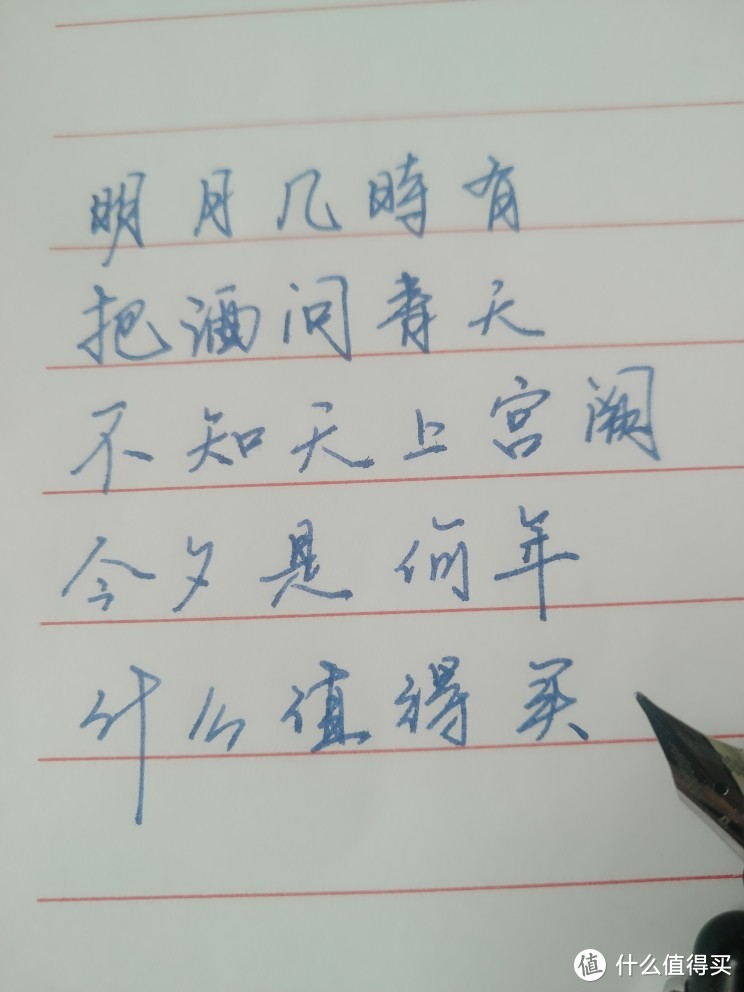 明月几時有
把酒问青天
不知天上宫阙
今夕是何年
什么值得买
值 什么值得买